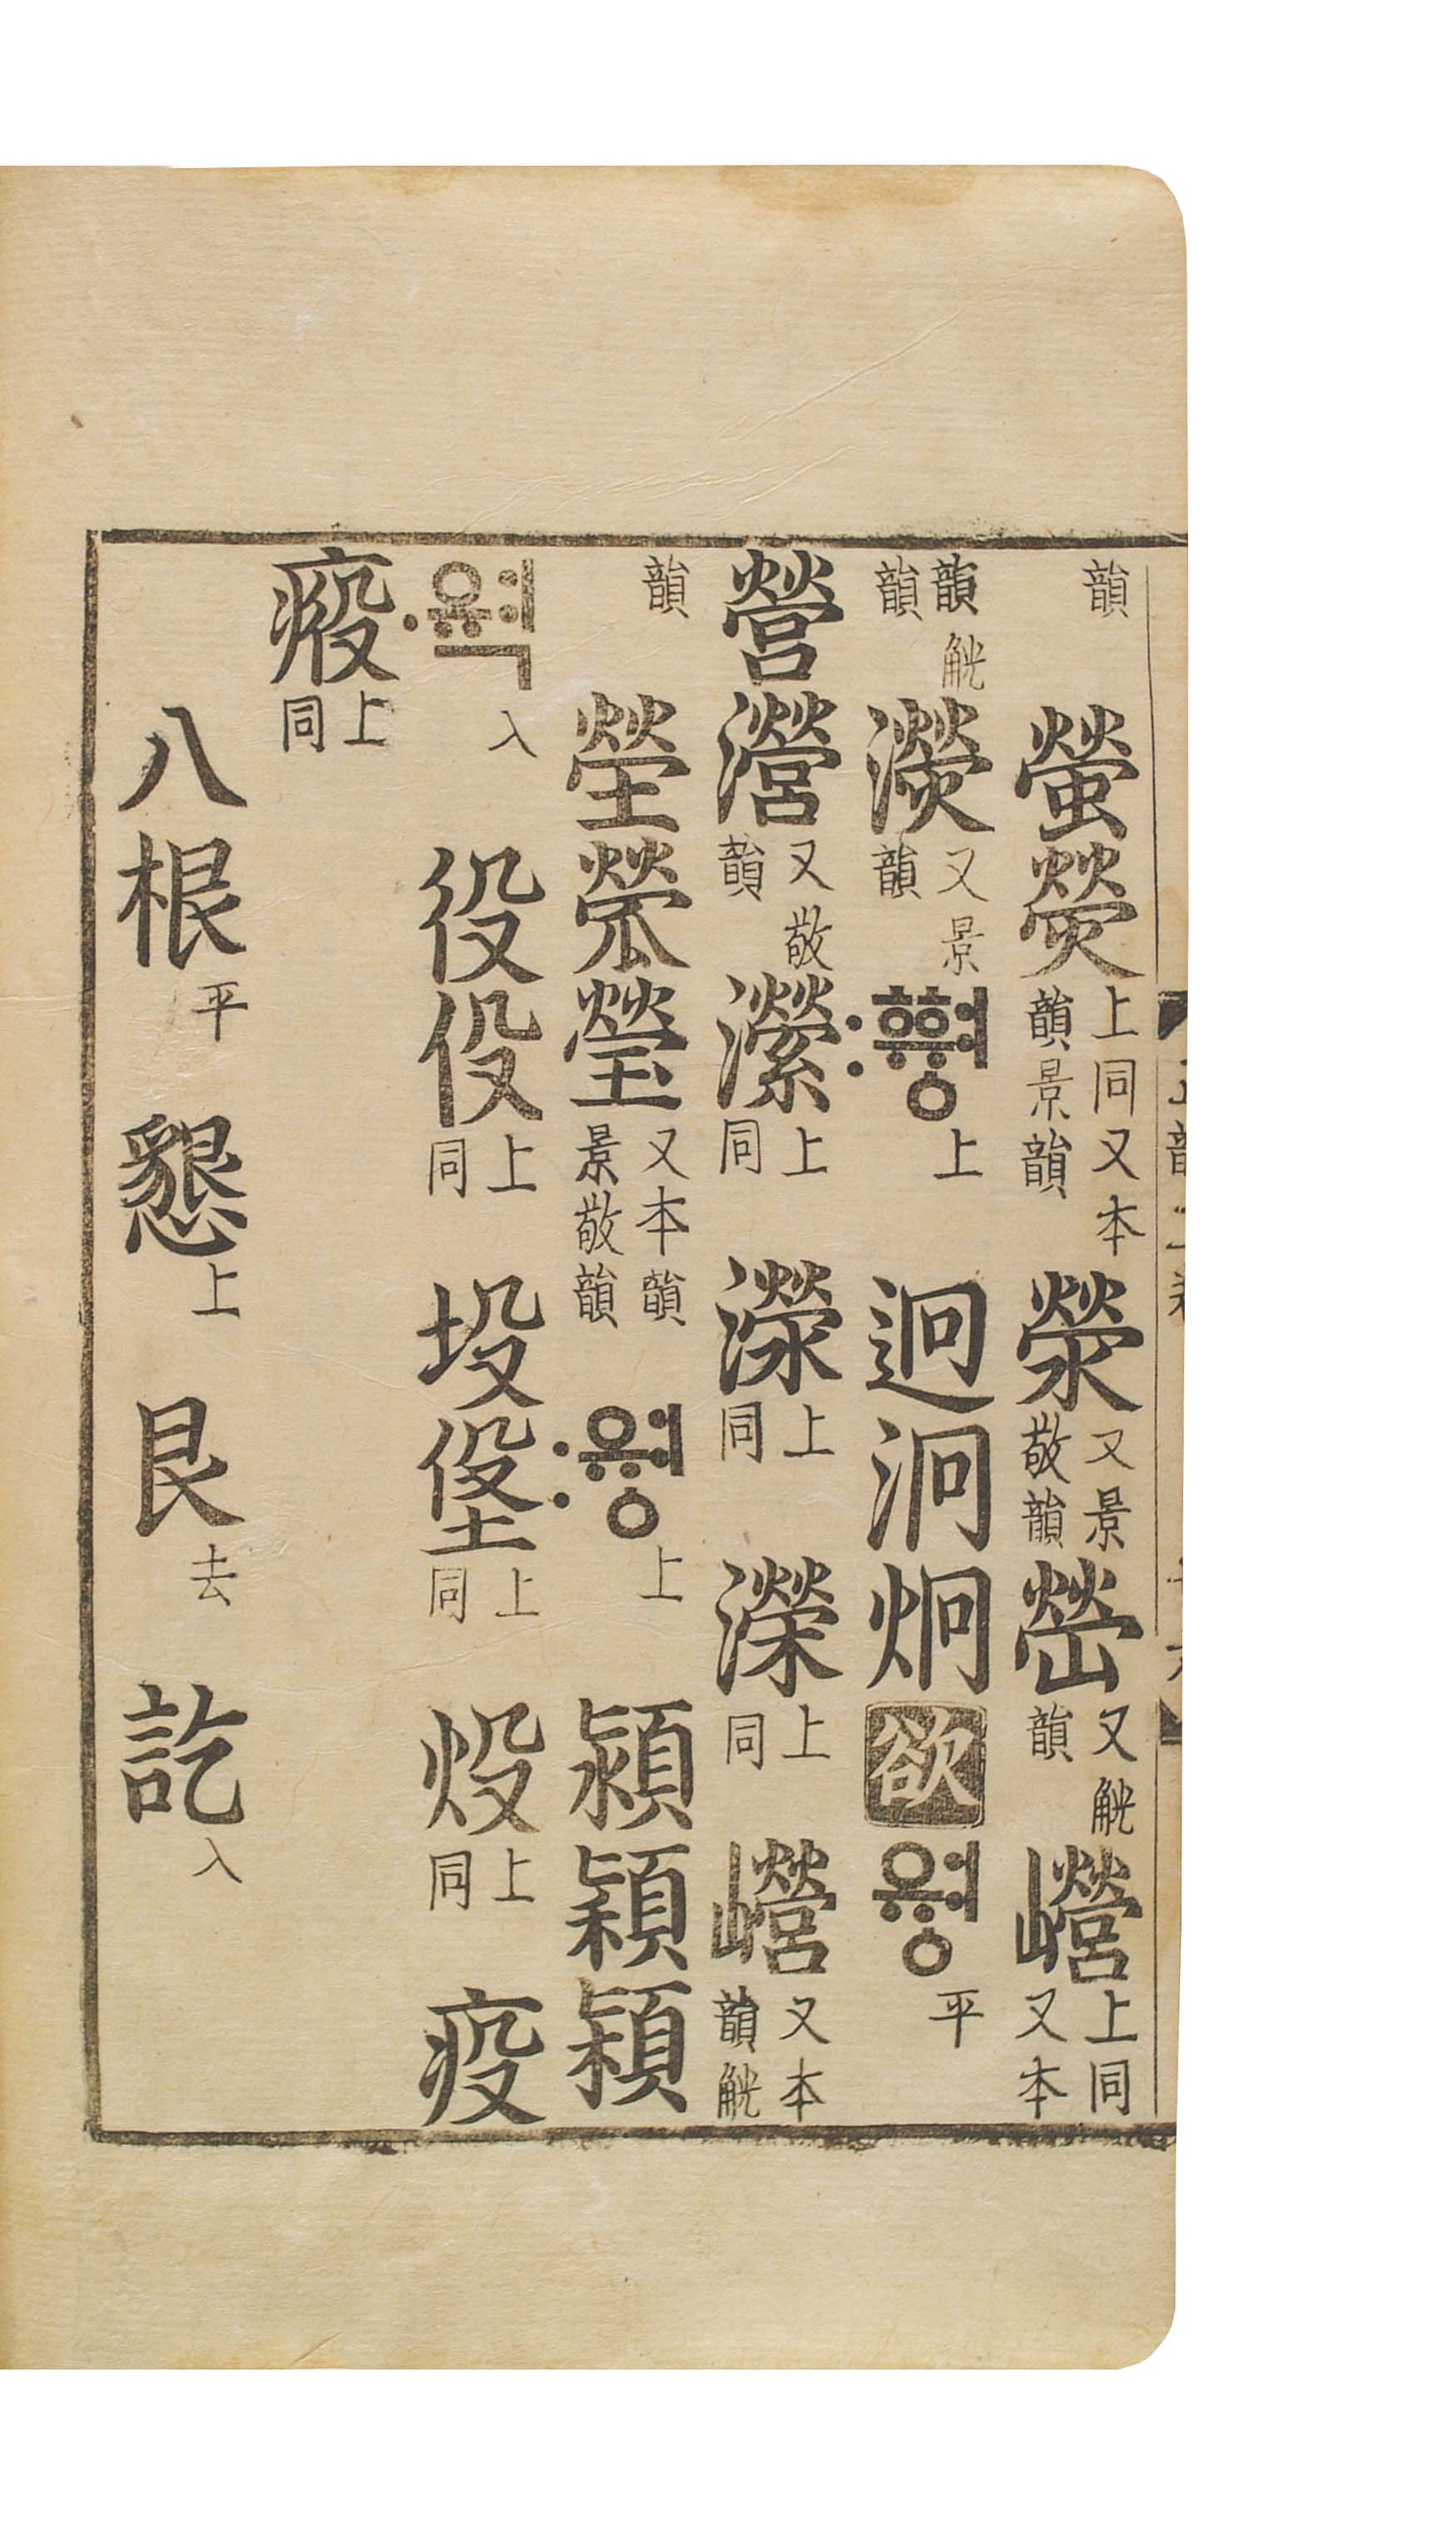 韻 螢熒上同又本韻景韻 滎又景敬韻 嵤又觥韻 巆上同又本
韻觥韻 濙又景韻 ᅘᆑᇰ〯上 迥泂炯 欲 ᄋᆑᇰ平
營瀯又敬韻 瀠上同 濴上同 濚上同 巆又本韻觥
韻 塋瑩又本韻景敬韻 ᄋᆑᇰ〯上 潁穎頴
ᄋᆑᆨ〮入 役伇上同 坄垼上同 炈上同 疫
上同
八 根平 懇上 艮去 訖入